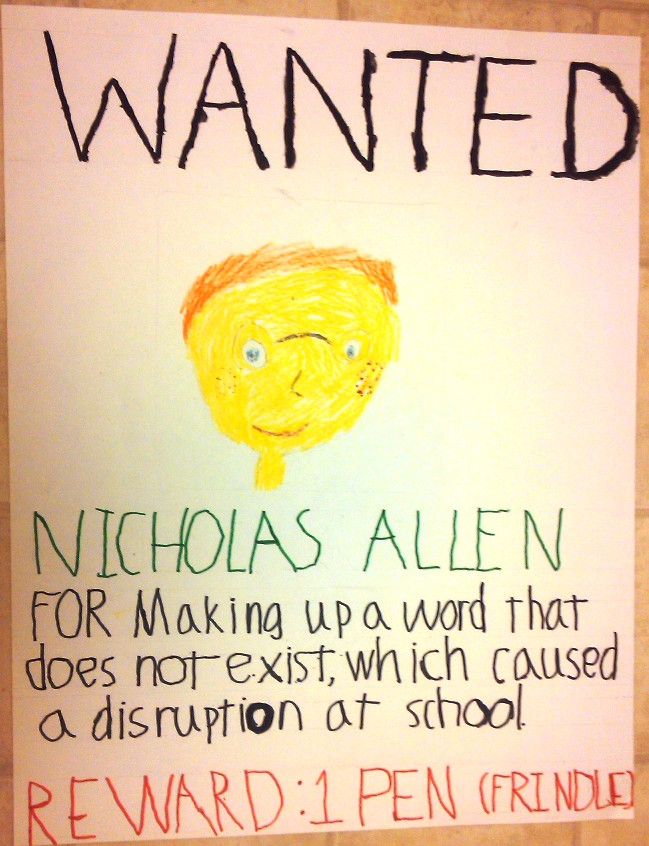 WANTED
NICHOLAS ALLEN
FOR Making up a word that
does not exist, which caused
a disruption at school.
REWARD: 1 PEN (FRINDLE)